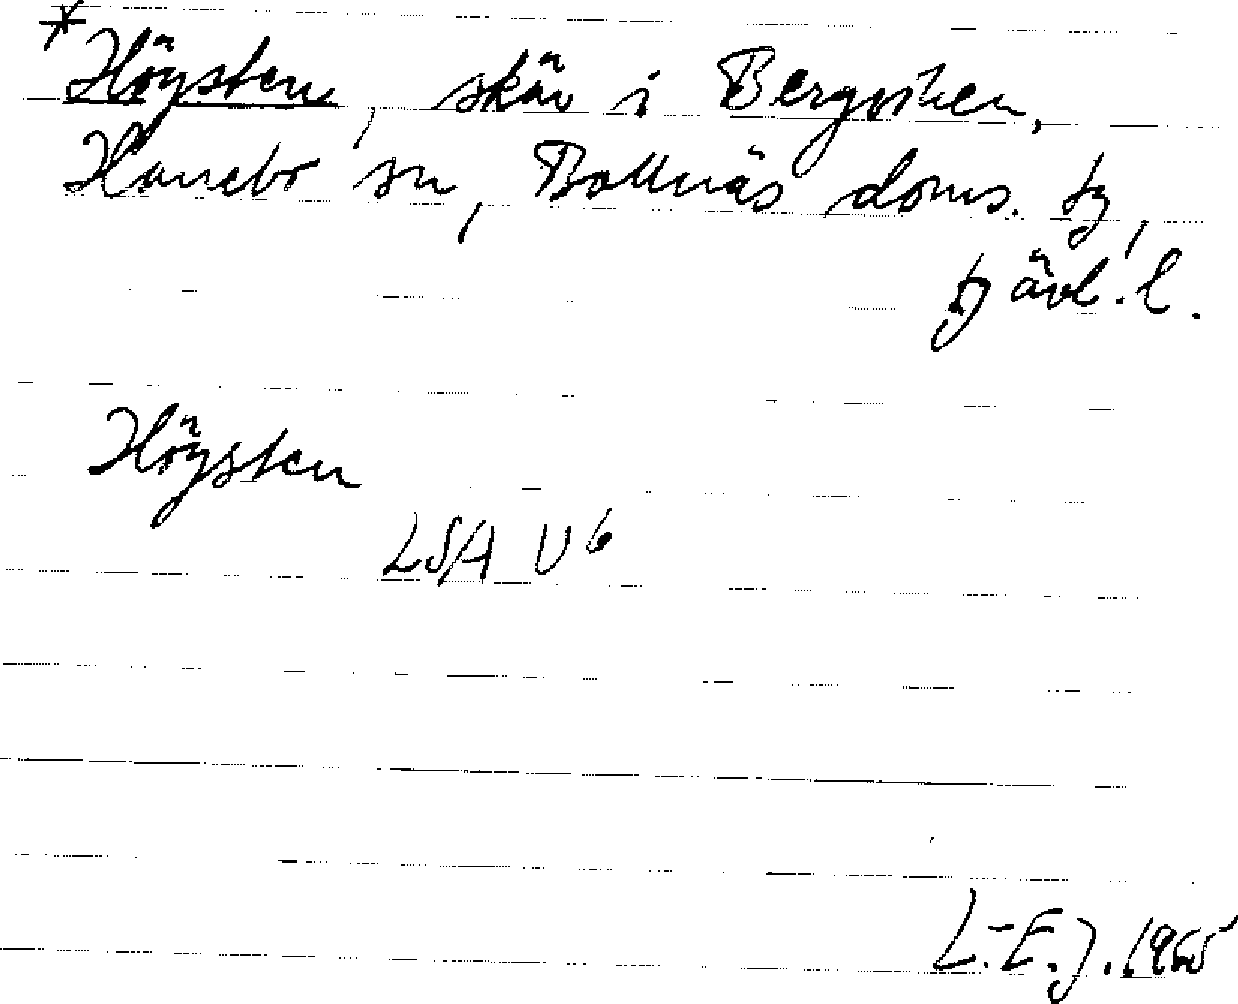 *Högsten, skär i Bergviken,
Hanebo sn, Bollnäs doms. tg,
Gävl. l.
Högsten
LSA U6
L.-E.J. 1965